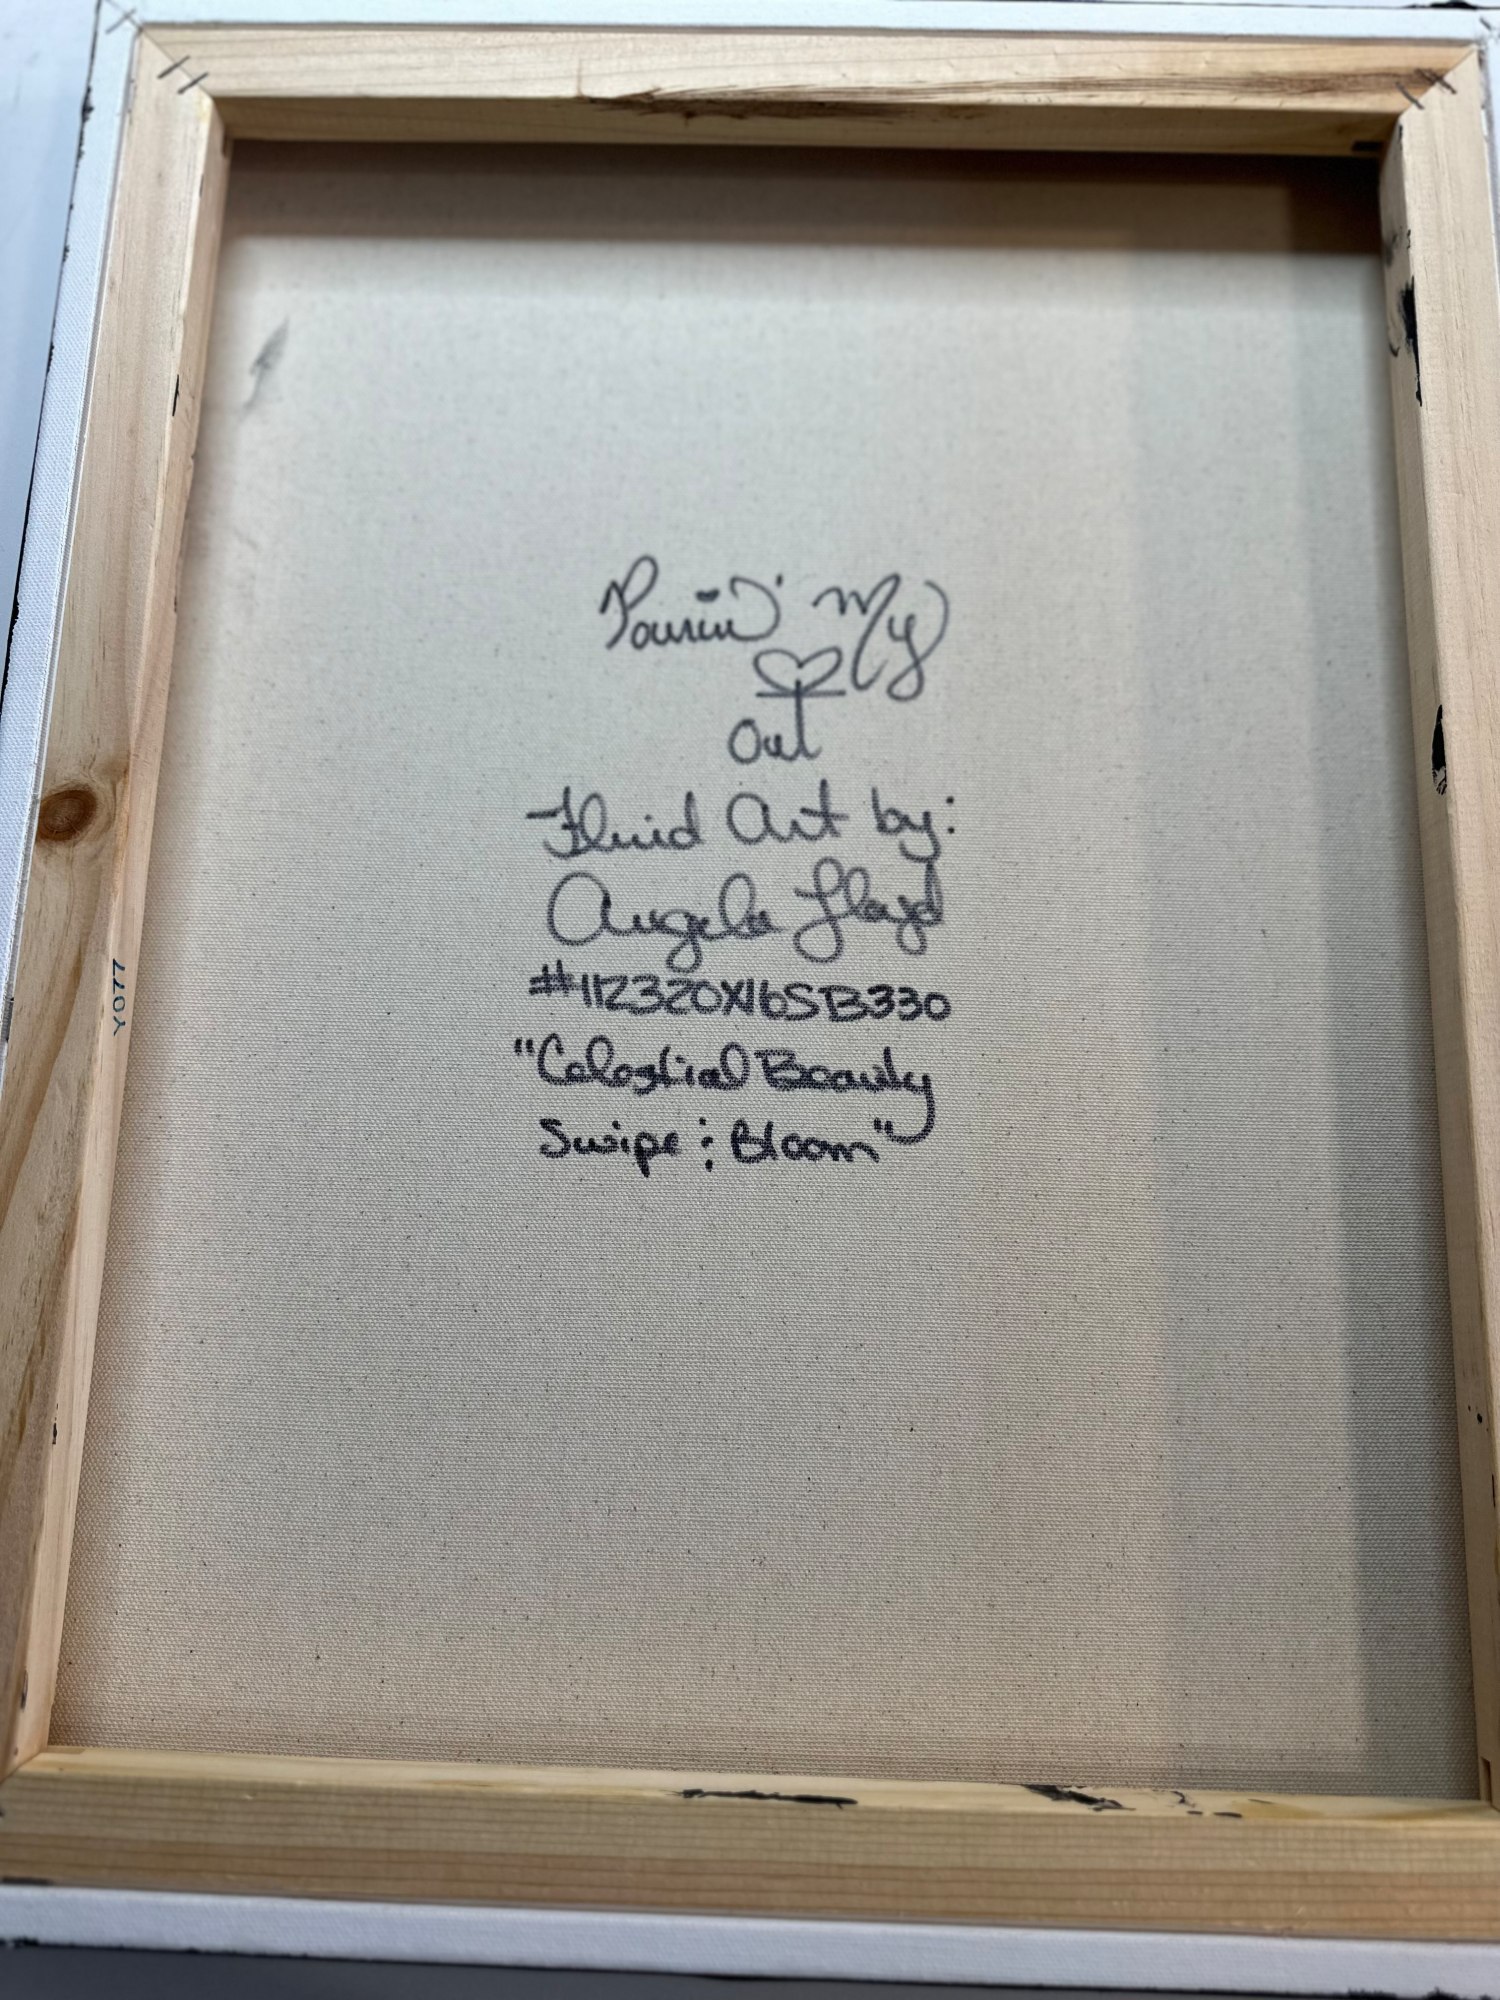 Pourin' My
Out
Fluid Art by:
Angela Floyd
#112320X16SB330
"Celestial Beauty
Swipe : Bloom"
Y077